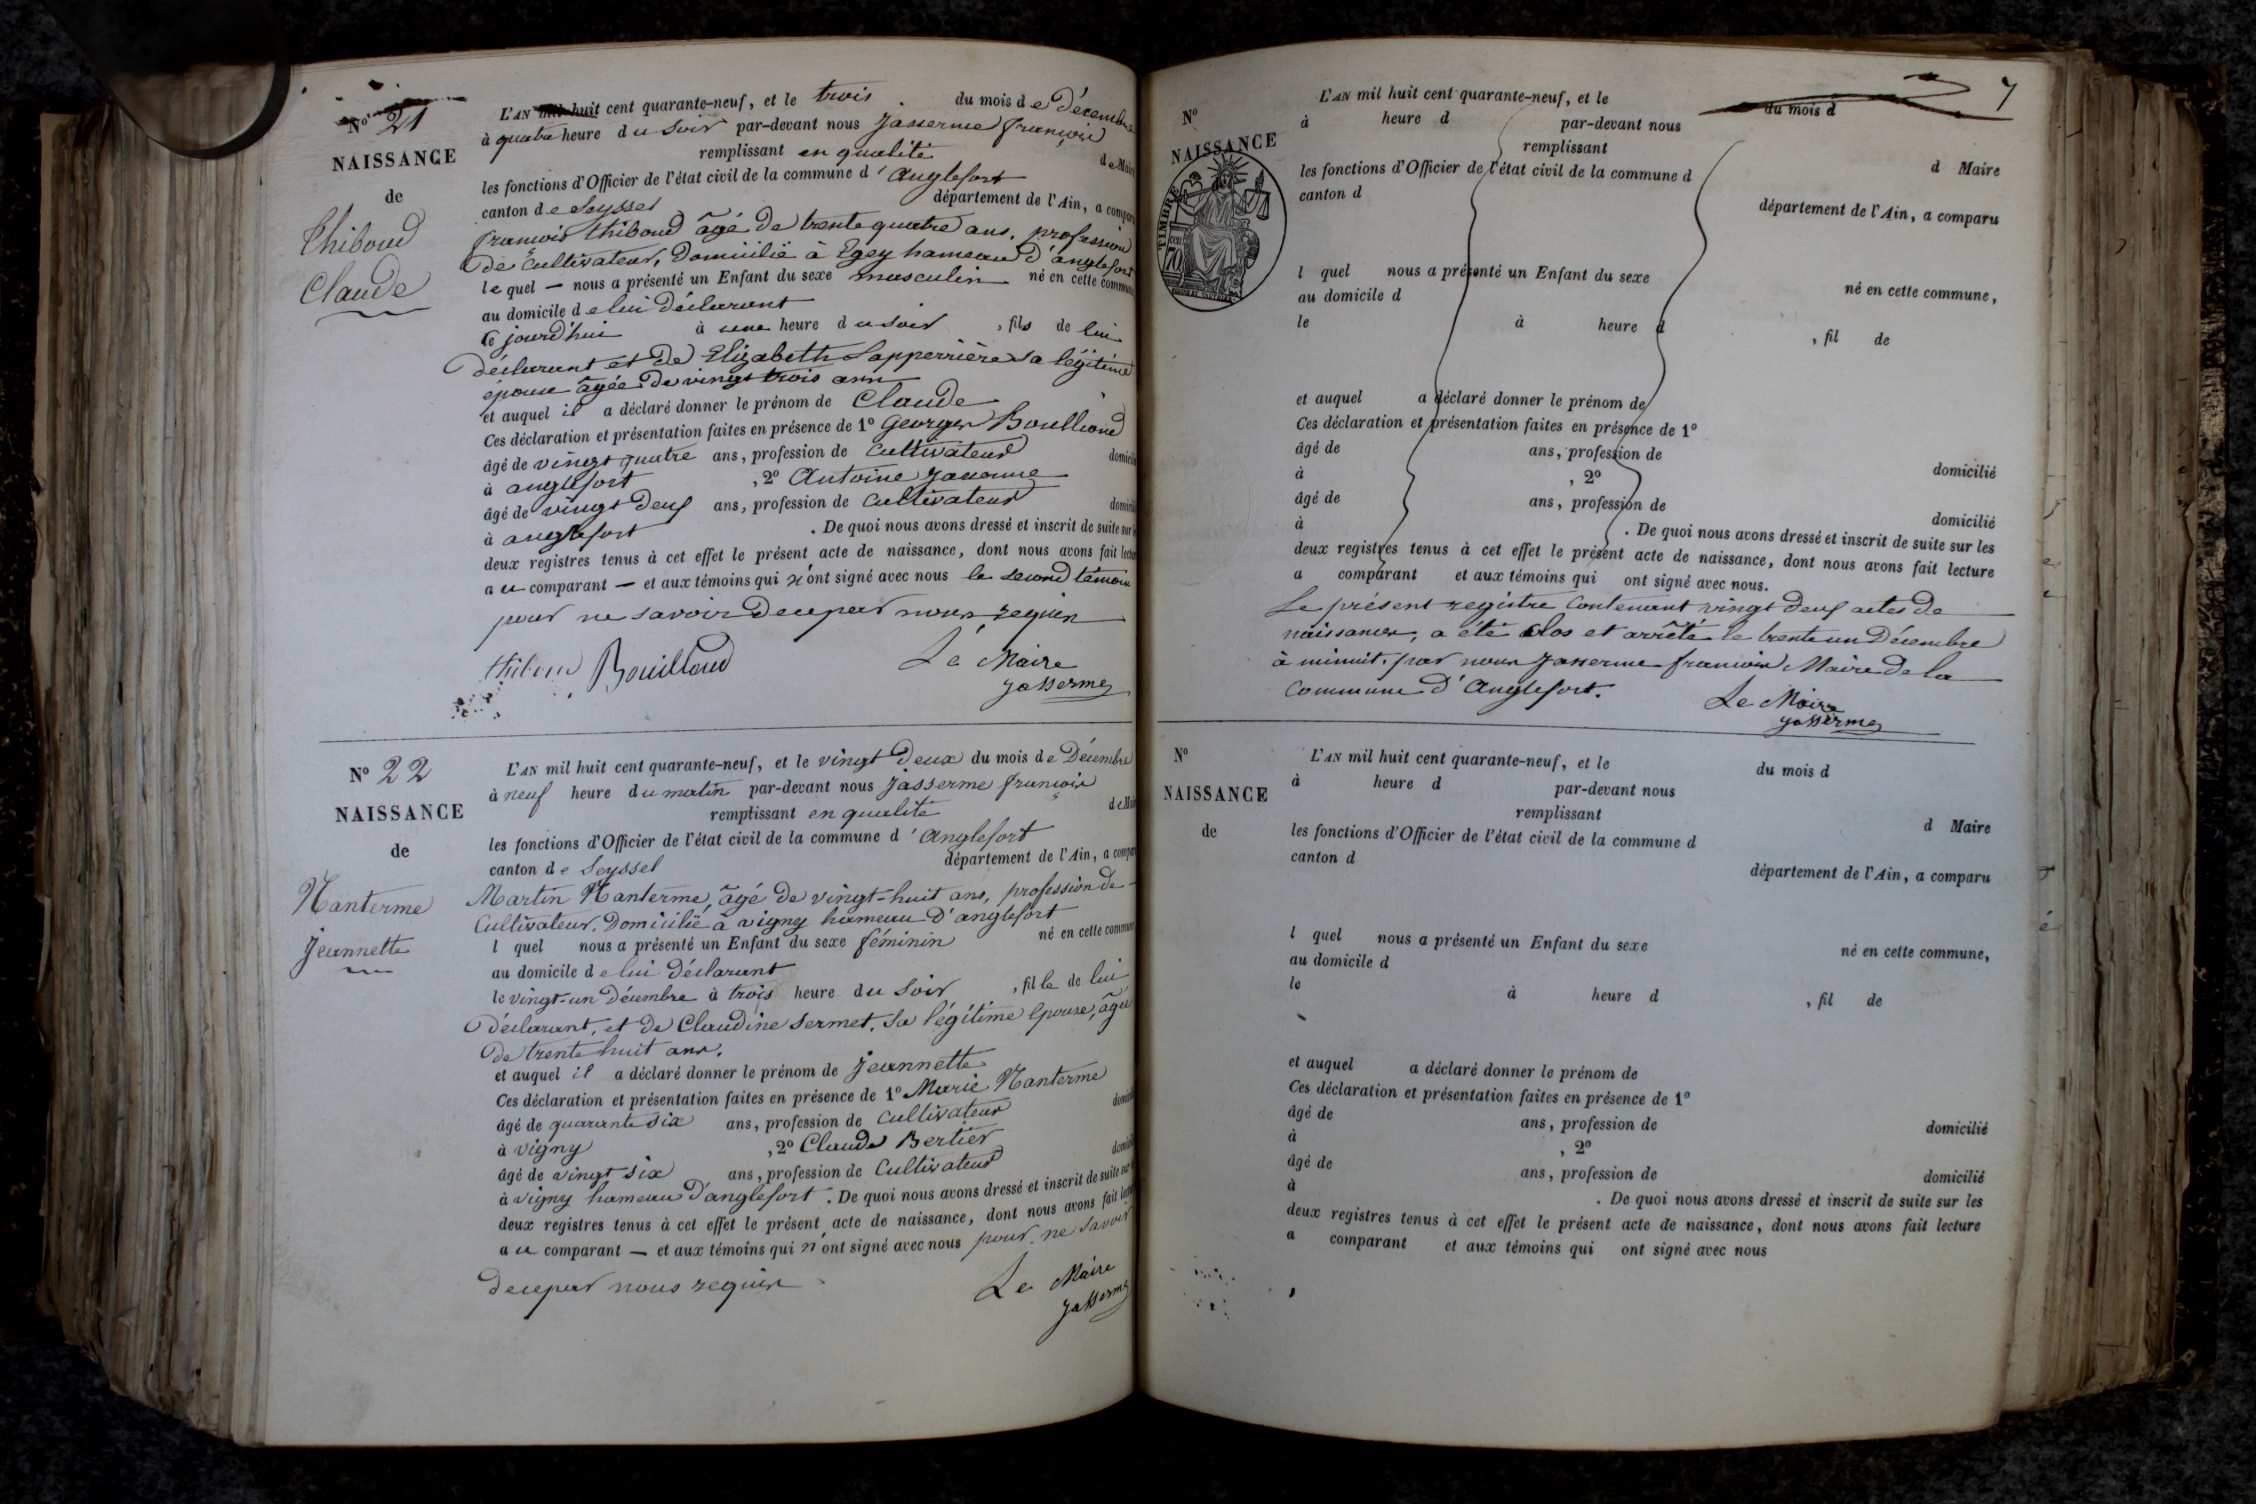 N° 21
NAISSANCE
de
Thiboud
Claude
L'AN mil huit cent quarante-neuf, et le trois du mois de Décembre
à quatre heure du Soir par-devant nous Jasserme françois
remplissant en qualité de Maire
les fonctions d'Officier de l'état civil de la commune d'Anglefort
canton de Seyssel département de l'Ain, a comparu
françois thiboud âgé de trente quatre ans, profession
De Cultivateur, Domicilié à Egey hameau d'anglefort
lequel — nous a présenté un Enfant du sexe masculin né en cette commune
au domicile de lui déclarant
Ce jourd'hui à une heure du soir, fils de lui
déclarant et de Elizabeth Lapperrière sa légitime
épouse âgée de vingt trois ans
et auquel il a déclaré donner le prénom de Claude
Ces déclaration et présentation faites en présence de 1° Georges Boullioud
âgé de vingt quatre ans, profession de Cultivateur domicilié
à anglefort, 2° Antoine
âgé de vingt Deux ans, profession de Cultivateur domicilié
à anglefort. De quoi nous avons dressé et inscrit de suite sur les
deux registres tenus à cet effet le présent acte de naissance, dont nous avons fait lecture
au comparant — et aux témoins qui n'ont signé avec nous le second témoin
pour ne savoir De ce par nous requis
thiboud Bouilloud Le Maire
Jasserme
N° 22
NAISSANCE
de
Nanterme
Jeannette
L'AN mil huit cent quarante-neuf, et le vingt Deux du mois de Décembre
à neuf heure du matin par-devant nous Jasserme françois
remplissant en qualité de Maire
les fonctions d'Officier de l'état civil de la commune d'Anglefort
canton de Seyssel département de l'Ain, a comparu
Martin Nanterme, âgé de vingt-huit ans, profession de
Cultivateur, Domicilié à vigny hameau D'anglefort
l quel nous a présenté un Enfant du sexe féminin né en cette commune
au domicile de lui Déclarant
le vingt-un Décembre à trois heure du Soir, fille de lui
Déclarant, et de Claudine Sermet, Sa légitime Epouse, âgée
De trente huit ans.
et auquel il a déclaré donner le prénom de Jeannette
Ces déclaration et présentation faites en présence de 1° Marie Nanterme
âgé de quarante six ans, profession de Cultivateur domicilié
à vigny, 2° Claude Bertier
âgé de vingt six ans, profession de Cultivateur domicilié
à vigny hameau D'anglefort. De quoi nous avons dressé et inscrit de suite sur
deux registres tenus à cet effet le présent acte de naissance, dont nous avons fait lecture
au comparant — et aux témoins qui n'ont signé avec nous pour ne savoir
De ce par nous requis Le Maire
Jasserme
7
N°
NAISSANCE
TIMBRE
70
L'AN mil huit cent quarante-neuf, et le du mois d
à heure d par-devant nous
remplissant d Maire
les fonctions d'Officier de l'état civil de la commune d
canton d département de l'Ain, a comparu
l quel nous a présenté un Enfant du sexe né en cette commune,
au domicile d
le à heure d, fil de
et auquel a déclaré donner le prénom de
Ces déclaration et présentation faites en présence de 1°
âgé de ans, profession de domicilié
à, 2°
âgé de ans, profession de domicilié
à. De quoi nous avons dressé et inscrit de suite sur les
deux registres tenus à cet effet le présent acte de naissance, dont nous avons fait lecture
a comparant et aux témoins qui ont signé avec nous.
Le présent registre Contenant vingt Deux actes de
naissances, a été Clos et arrêté le trente un Décembre
à minuit, par nous Jasserme françois Maire de la
Commune D'Anglefort.
Le Maire
Jasserme
N°
NAISSANCE
de
L'AN mil huit cent quarante-neuf, et le du mois d
à heure d par-devant nous
remplissant d Maire
les fonctions d'Officier de l'état civil de la commune d
canton d département de l'Ain, a comparu
l quel nous a présenté un Enfant du sexe né en cette commune,
au domicile d
le à heure d, fil de
et auquel a déclaré donner le prénom de
Ces déclaration et présentation faites en présence de 1°
âgé de ans, profession de domicilié
à, 2°
âgé de ans, profession de domicilié
à. De quoi nous avons dressé et inscrit de suite sur les
deux registres tenus à cet effet le présent acte de naissance, dont nous avons fait lecture
a comparant et aux témoins qui ont signé avec nous